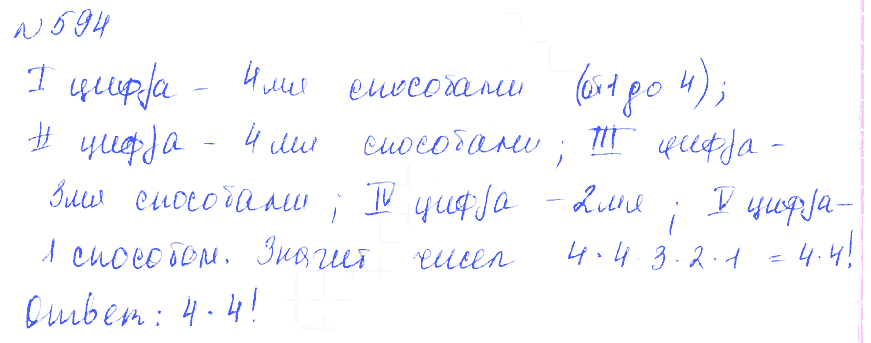 № 594
I цифра - 4мя способами (от 1 до 4);
II цифра - 4мя способами; III цифра -
3мя способами; IV цифра - 2мя; V цифра -
1 способом. Значит чисел 4·4·3·2·1 = 4·4!
Ответ: 4·4!